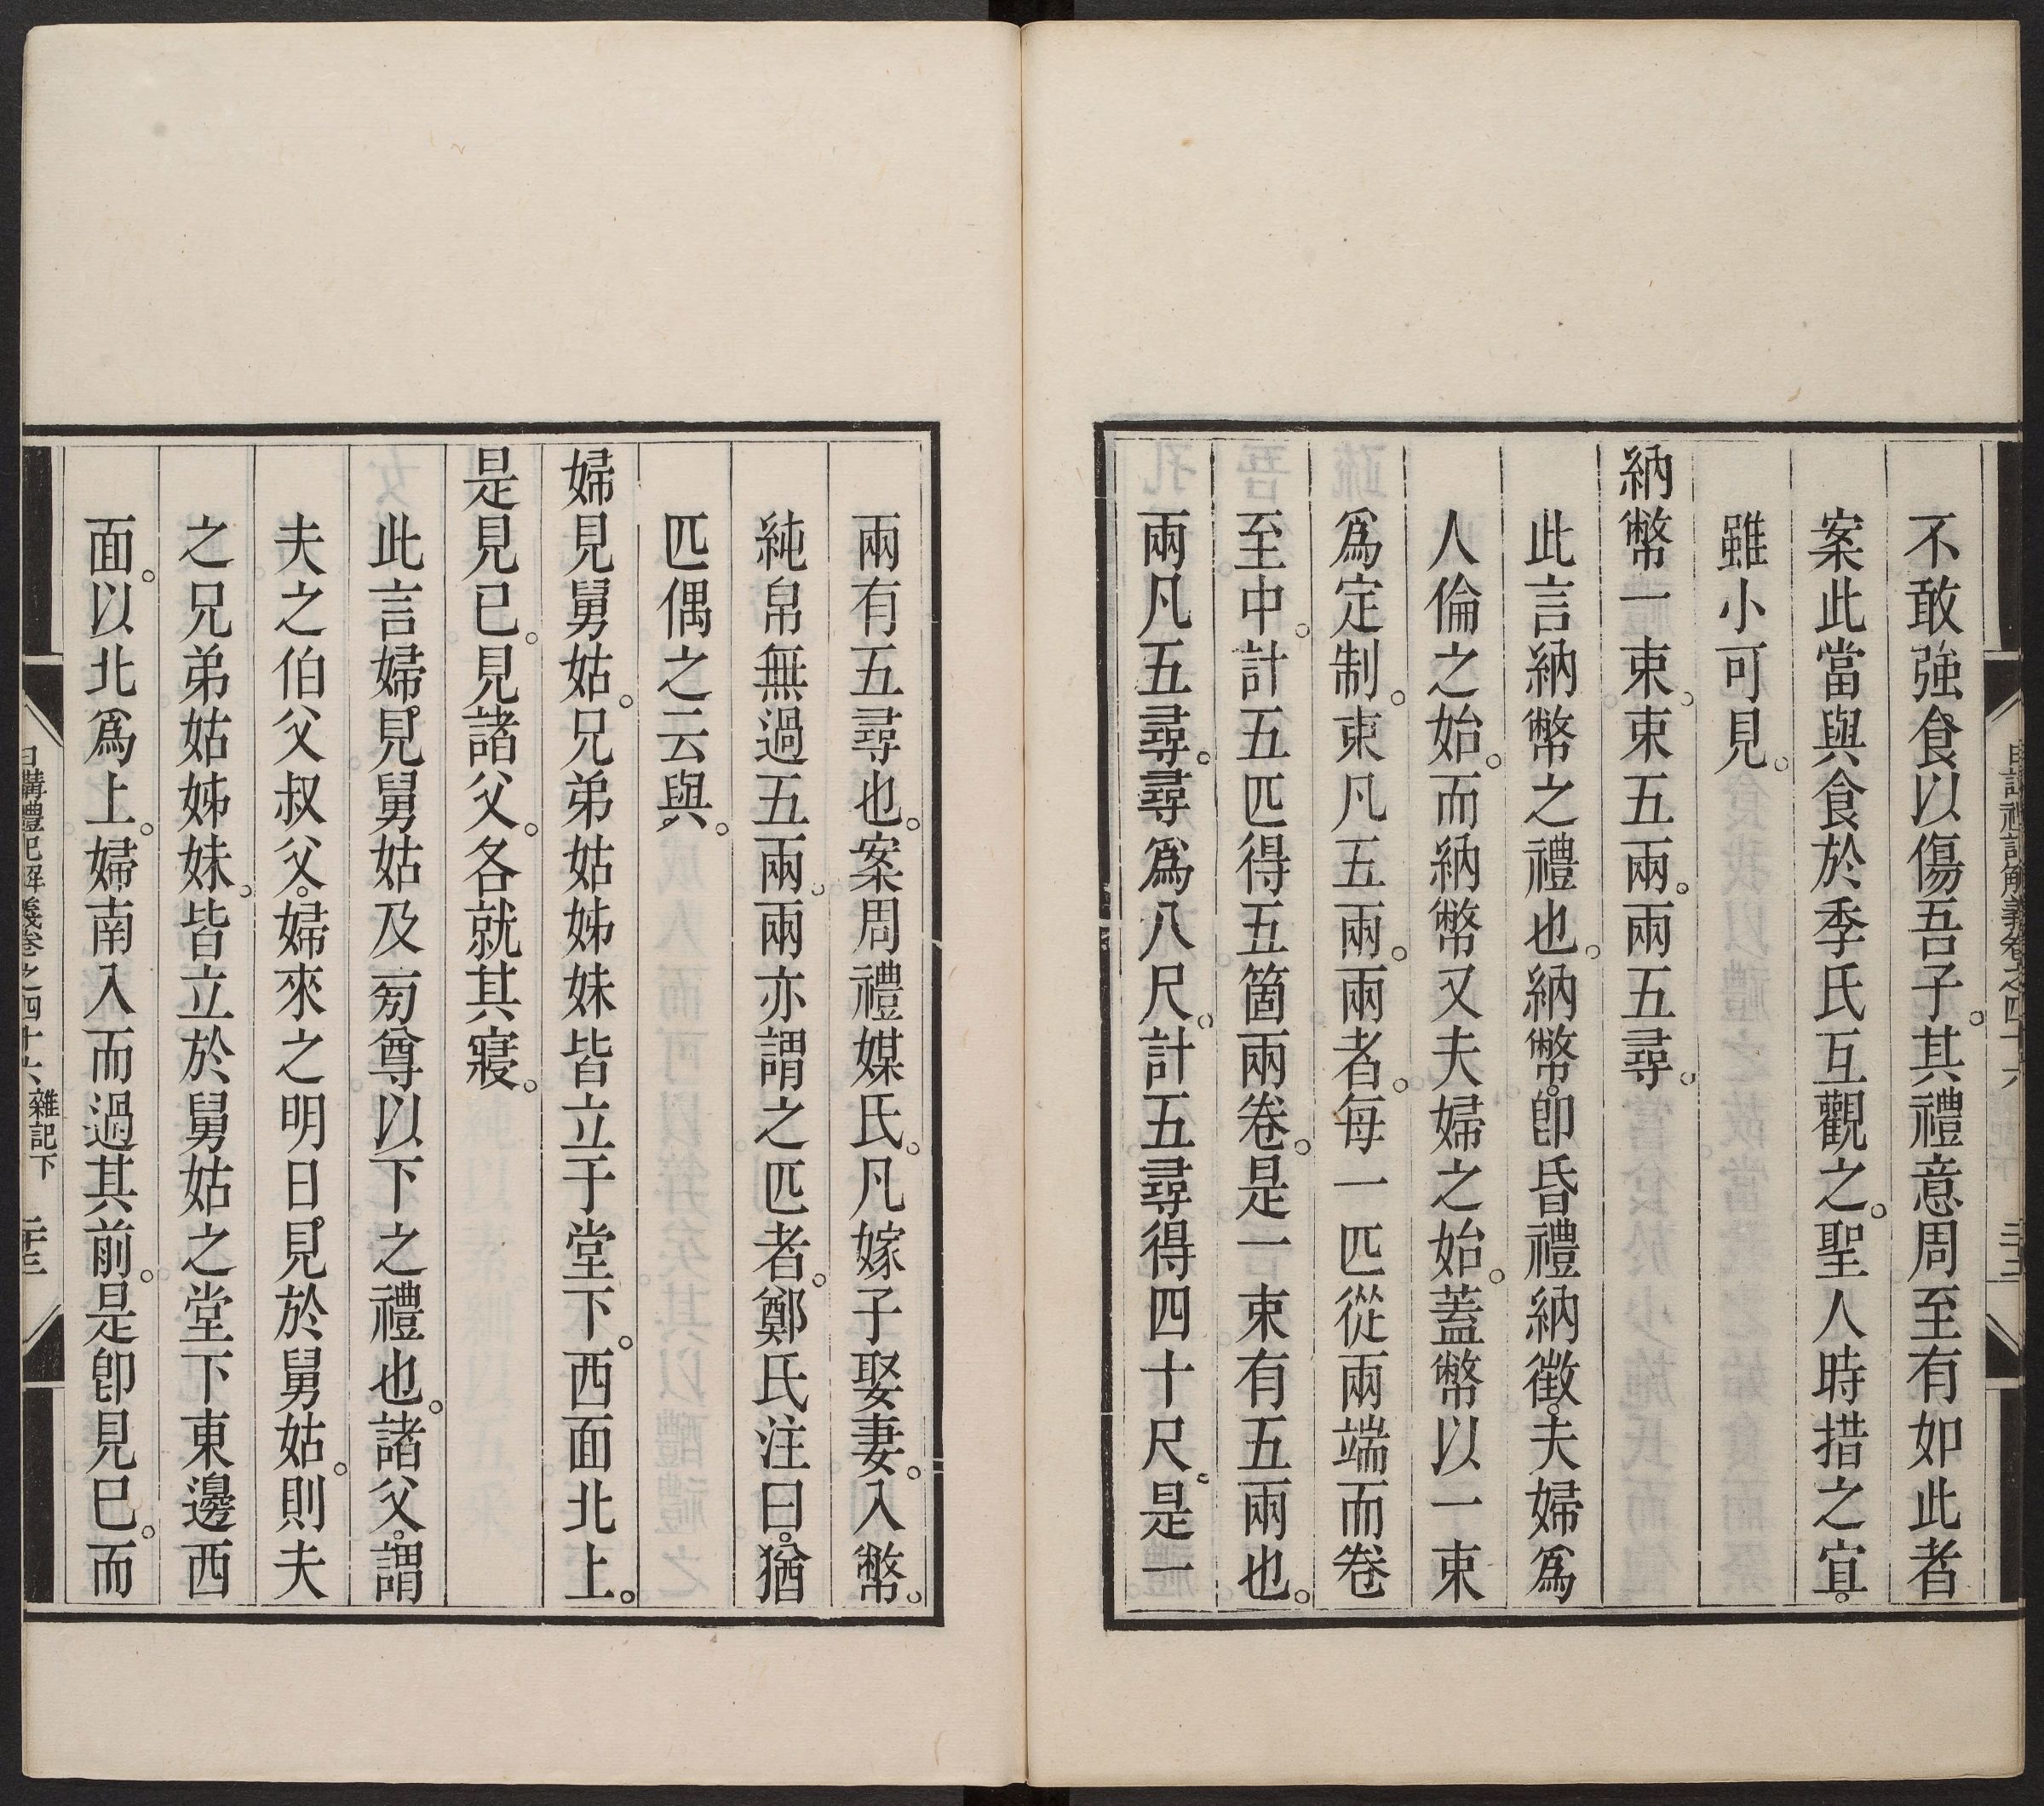 不敢強食以傷吾子。其禮意周至有如此者
案此當與食於季氏互觀之。聖人時措之宜。
雖小可見。
納幣一束。束五兩。兩五尋。
此言納幣之禮也。納幣。卽昏禮納徵。夫婦爲
人倫之始。而納幣又夫婦之始。蓋幣以一束
爲定制。束凡五兩。兩者。每一匹從兩端而卷
至中。計五匹得五箇兩卷。是一束有五兩也。
兩凡五尋。尋爲八尺。計五尋得四十尺。是一
兩有五尋也。案周禮媒氏。凡嫁子娶妻。入幣。
純帛無過五兩。兩亦謂之匹者。鄭氏注曰。猶
匹偶之云與。
婦見舅姑。兄弟姑姊妹皆立于堂下。西面北上。
是見已。見諸父。各就其寢。
此言婦見舅姑及旁尊以下之禮也。諸父。謂
夫之伯父叔父。婦來之明日。見於舅姑。則夫
之兄弟姑姊妹。皆立於舅姑之堂下東邊西
面。以北爲上。婦南入而過其前。是卽見已。而
日講禮記解義卷之四十六 雜記下 三十三